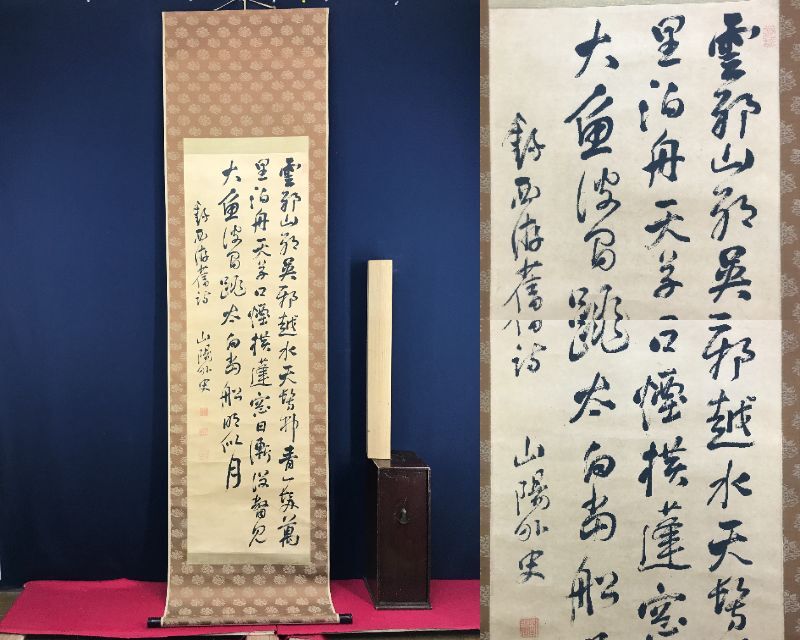 雲耶山耶吳耶越水天髣髴青一髮萬
里泊舟天草口煙橫蓬窓日漸沒瞥見
大魚波間跳太白當船明似月
錄西游舊詩
山陽外史
雲耶山耶吳耶越水天髣
里泊舟天草口煙橫蓬窓
大魚波間跳太白當船
錄西游舊詩
山陽外史